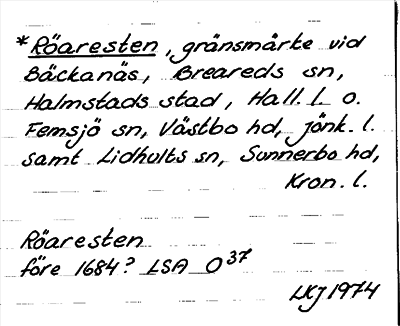 *Röaresten, gränsmärke vid
Bäckanäs, Breareds sn,
Halmstads stad, Hall. l. o.
Femsjö sn, Västbo hd, Jönk. l.
samt Lidhults sn, Sunnerbo hd,
Kron. l.
Röaresten
före 1684? LSA O³⁷
LKJ 1974